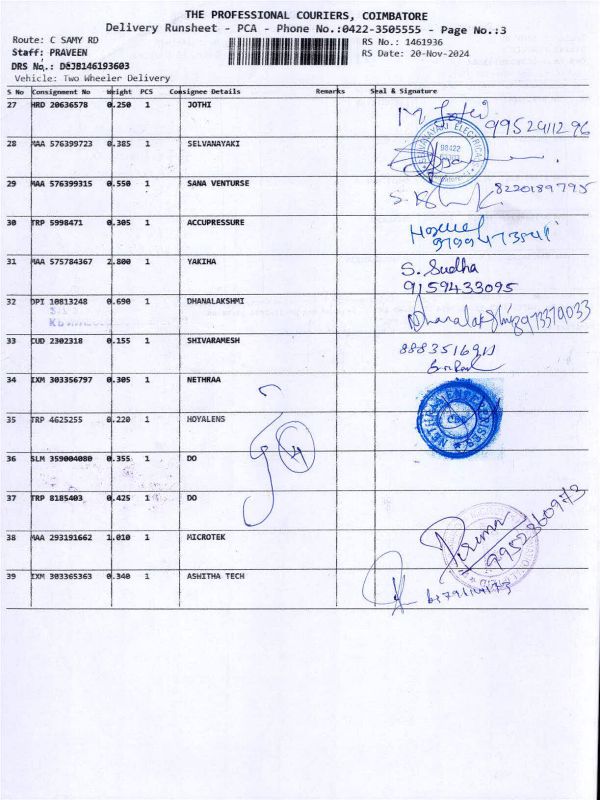 THE PROFESSIONAL COURIERS, COIMBATORE
Delivery Runsheet - PCA - Phone No.:0422-3505555 - Page No.:3
Route: C SAMY RD
RS No.: 1461936
Staff: PRAVEEN
RS Date: 20-Nov-2024
DRS No.: D8JB146193603
Vehicle: Two Wheeler Delivery
S No Consignment No Weight PCS Consignee Details Remarks Seal & Signature
27 HRD 20636578 0.250 1 JOTHI
9952411296
28 MAA 576399723 0.385 1 SELVANAYAKI
29 MAA 576399315 0.550 1 SANA VENTURSE
8220189795
30 TRP 5998471 0.305 1 ACCUPRESSURE
31 MAA 575784367 2.800 1 YAKIHA S. Sudha
9159433095
32 DPI 10813248 0.690 1 DHANALAKSHMI
33 CUD 2302318 0.155 1 SHIVARAMESH
34 IXM 303356797 0.305 1 NETHRAA
NETHRAA ENTERPRISES
CBE
35 TRP 4625255 0.220 1 HOYALENS
4
36 SLM 359004080 0.355 1 DO
37 TRP 8185403 0.425 1 DO
38 MAA 293191662 1.010 1 MICROTEK
9952360973
39 IXM 303365363 0.340 1 ASHITHA TECH